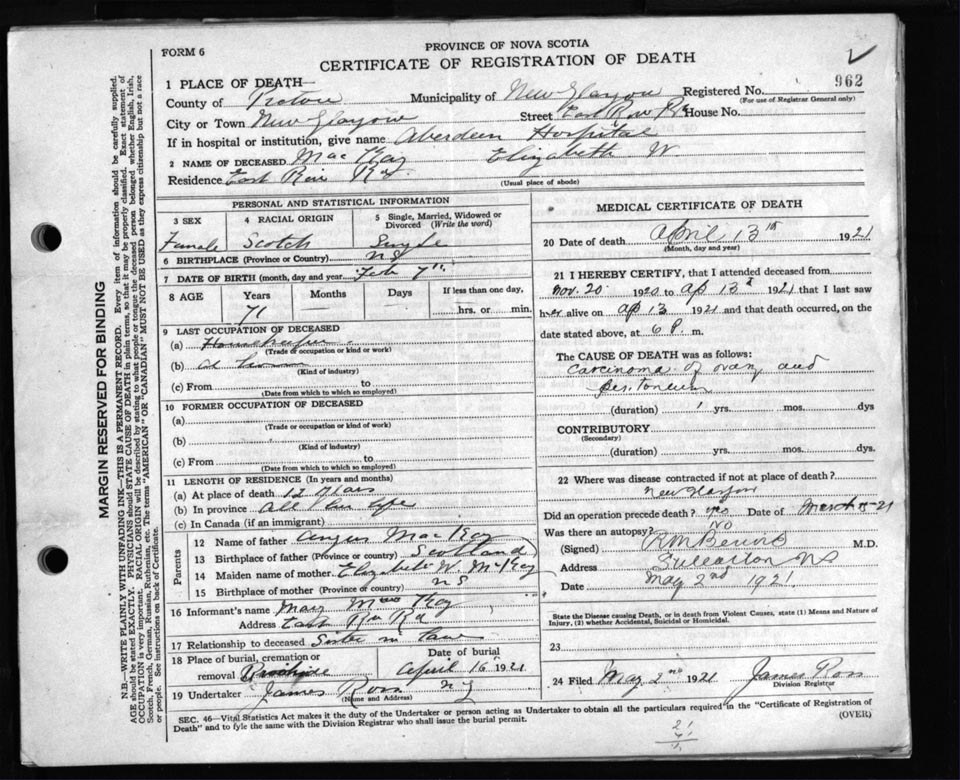 FORM 6
PROVINCE OF NOVA SCOTIA
CERTIFICATE OF REGISTRATION OF DEATH
962
1 PLACE OF DEATH—
County of Pictou Municipality of New Glasgow Registered No.
(For use of Registrar General only)
City or Town New Glasgow Street East River Rd House No.
If in hospital or institution, give name Aberdeen Hospital
2 NAME OF DECEASED MacKay Elizabeth W.
Residence East River Rd.
(Usual place of abode)
PERSONAL AND STATISTICAL INFORMATION
3 SEX 4 RACIAL ORIGIN 5 Single, Married, Widowed or Divorced (Write the word)
Female Scotch Single
6 BIRTHPLACE (Province or Country) NS
7 DATE OF BIRTH (month, day and year) Feb 7th
8 AGE Years Months Days If less than one day,
71 — hrs. or min.
9 LAST OCCUPATION OF DECEASED
(a) Housekeeper
(Trade or occupation or kind or work)
(b) at home
(Kind of industry)
(c) From to
(Date from which to which so employed)
10 FORMER OCCUPATION OF DECEASED
(a)
(Trade or occupation or kind of work)
(b)
(Kind of industry)
(c) From to
(Date from which to which so employed)
11 LENGTH OF RESIDENCE (In years and months)
(a) At place of death 12 years
(b) In province All her life
(c) In Canada (if an immigrant)
Parents
12 Name of father Angus MacKay
13 Birthplace of father (Province or country) Scotland
14 Maiden name of mother Elizabeth W. McKay
15 Birthplace of mother (Province or country) NS
16 Informant's name Mary MacKay
Address East River Rd
17 Relationship to deceased Sister in law
18 Place of burial, cremation or removal Date of burial
April 16 1921
19 Undertaker James Ross N G
(Name and Address)
MEDICAL CERTIFICATE OF DEATH
20 Date of death April 13th 1921
(Month, day and year)
21 I HEREBY CERTIFY, that I attended deceased from
Nov. 20 1920 to Ap 13th 1921 that I last saw
her alive on Ap 13 1921 and that death occurred, on the
date stated above, at 6 P. m.
The CAUSE OF DEATH was as follows:
Carcinoma of ovary and
peritoneum
(duration) 1 yrs. mos. dys
CONTRIBUTORY
(Secondary)
(duration) yrs. mos. dys.
22 Where was disease contracted if not at place of death?
New Glasgow
Did an operation precede death? yes Date of March 21
Was there an autopsy? No
(Signed) M.D.
Address Stellarton NS
Date May 2nd 1921
State the Disease causing Death, or in death from Violent Causes, state (1) Means and Nature of
Injury, (2) whether Accidental, Suicidal or Homicidal.
23
24 Filed May 2nd 1921 James Ross
Division Registrar
SEC. 46—Vital Statistics Act makes it the duty of the Undertaker or person acting as Undertaker to obtain all the particulars required in the "Certificate of Registration of
Death" and to fyle the same with the Division Registrar who shall issue the burial permit. (OVER)
MARGIN RESERVED FOR BINDING
N.B.—WRITE PLAINLY WITH UNFADING INK—THIS IS A PERMANENT RECORD. Every item of information should be carefully supplied.
AGE should be stated EXACTLY. PHYSICIANS should STATE CAUSE OF DEATH in plain terms, so that it may be properly classified. Exact statement of
OCCUPATION is very important. RACIAL ORIGIN will be described by stating to what people or tongue the deceased person belonged whether English, Irish,
Scotch, French, German, Russian, Ruthenian, etc. The terms "AMERICAN" or "CANADIAN" MUST NOT BE USED as they express citizenship but not a race
or people. See instructions on back of Certificate.